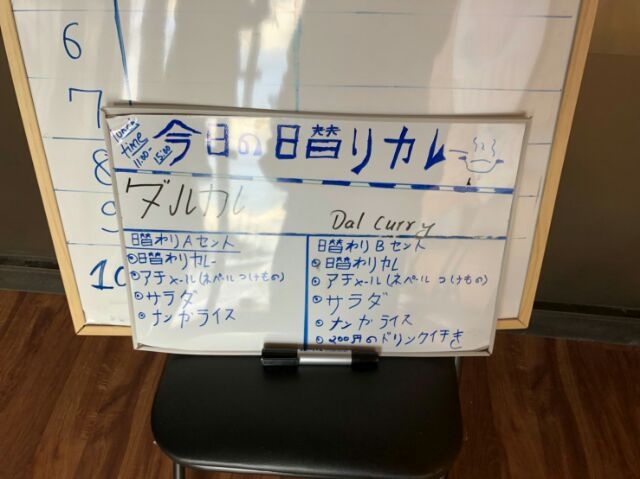 6
7
8
9
10
lunch
time
11:00~
15:00
今日の日替りカレ
ダルカレ
Dal curry
日替わりAセット
日替わりカレー
アチャール(ネパールつけもの)
サラダ
ナンかライス
日替わりBセット
日替わりカレ
アチャール(ネパールつけもの)
サラダ
ナンかライス
200円のドリンクイチき